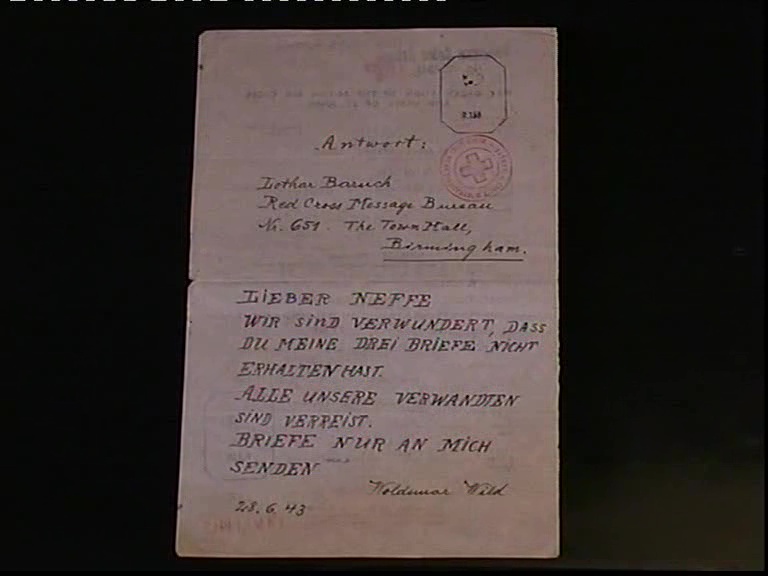 Antwort:
Lothar Baruch
Red Cross Message Bureau
Nr. 651. The Town Hall,
Birmingham.
LIEBER NEFFE
WIR SIND VERWUNDERT, DASS
DU MEINE DREI BRIEFE NICHT
ERHALTEN HAST.
ALLE UNSERE VERWANDTEN
SIND VERREIST.
BRIEFE NUR AN MICH
SENDEN
Woldemar Wild
28.6.43